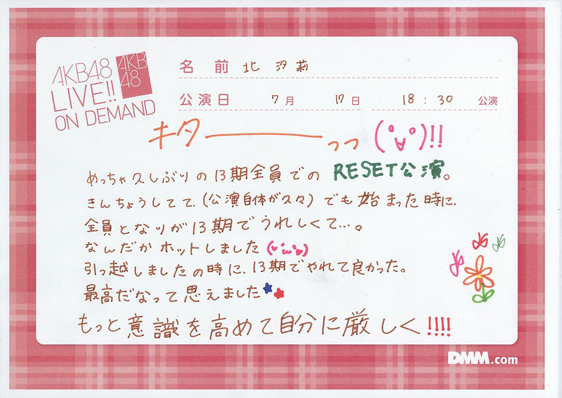 AKB48
LIVE!!
ON DEMAND
AKB
48
名前 北 汐莉
公演日 7月 17日 18:30 公演
キターーーっっ (°∀°)!!
めっちゃ久しぶりの13期全員でのRESET公演。
きんちょうしてて、(公演自体が久々)でも始まった時に、
全員となりが13期でうれしくて…。
なんだかホットしました
引っ越しましたの時に、13期でやれて良かった。
最高だなって思えました
もっと意識を高めて自分に厳しく!!!!
DMM.com